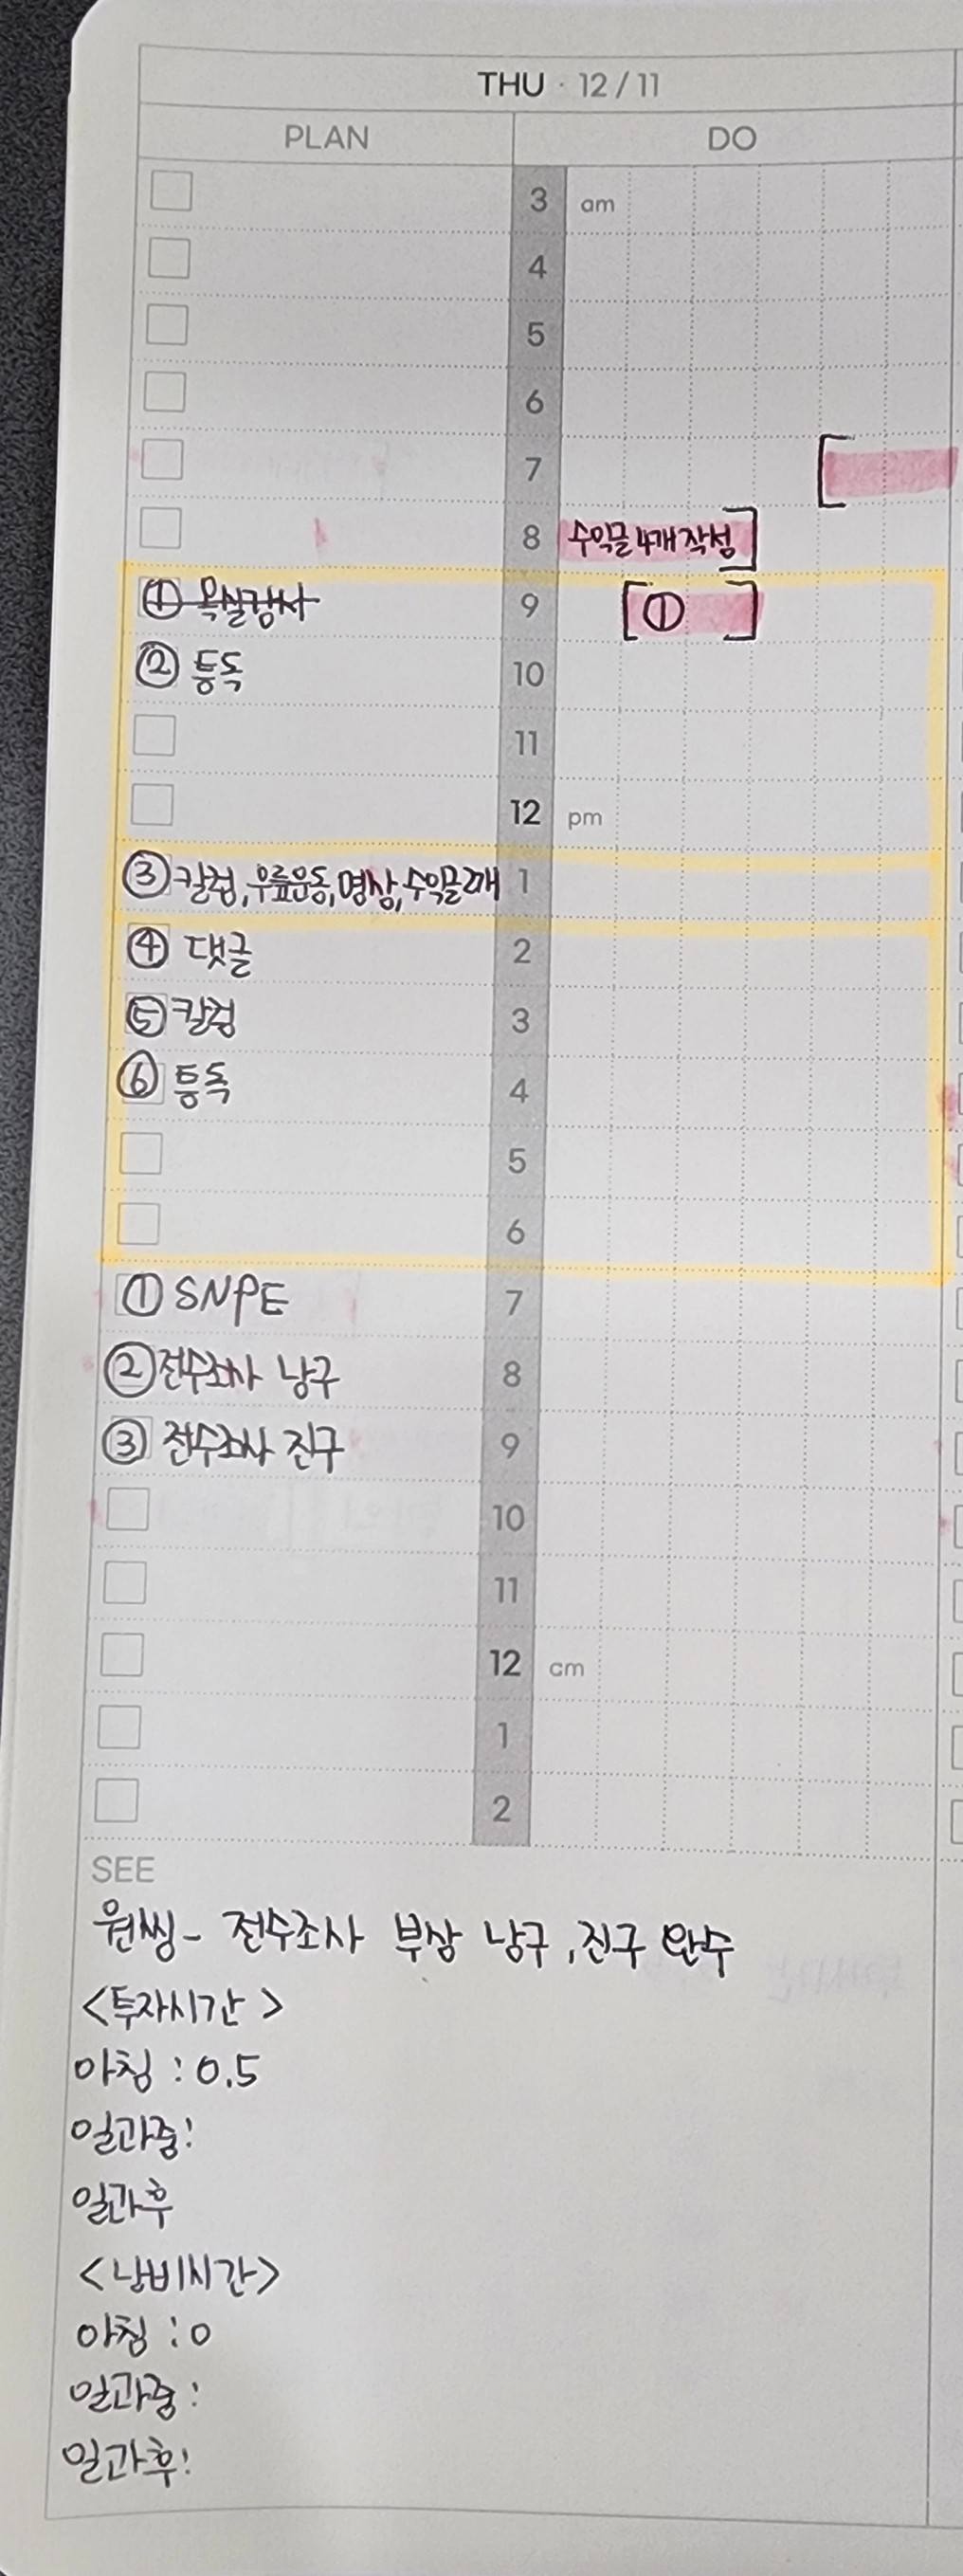 THU · 12/11
PLAN DO
3 am
4
5
6
7
8 수익글 4개 작성
① 욕실감사 9 ①
② 등독 10
11
12 pm
③ 칼럼, 우릎운동, 명상, 수익글 2개 1
④ 댓글 2
⑤ 칼럼 3
⑥ 등독 4
5
6
① SNPE 7
② 전수조사 남구 8
③ 전수조사 진구 9
10
11
12 am
1
2
SEE
원씽- 전수조사 부상 남구, 진구 완수
<투자시간>
아침 : 0.5
일과중:
일과후
<낭비시간>
아침 : 0
일과중:
일과후: